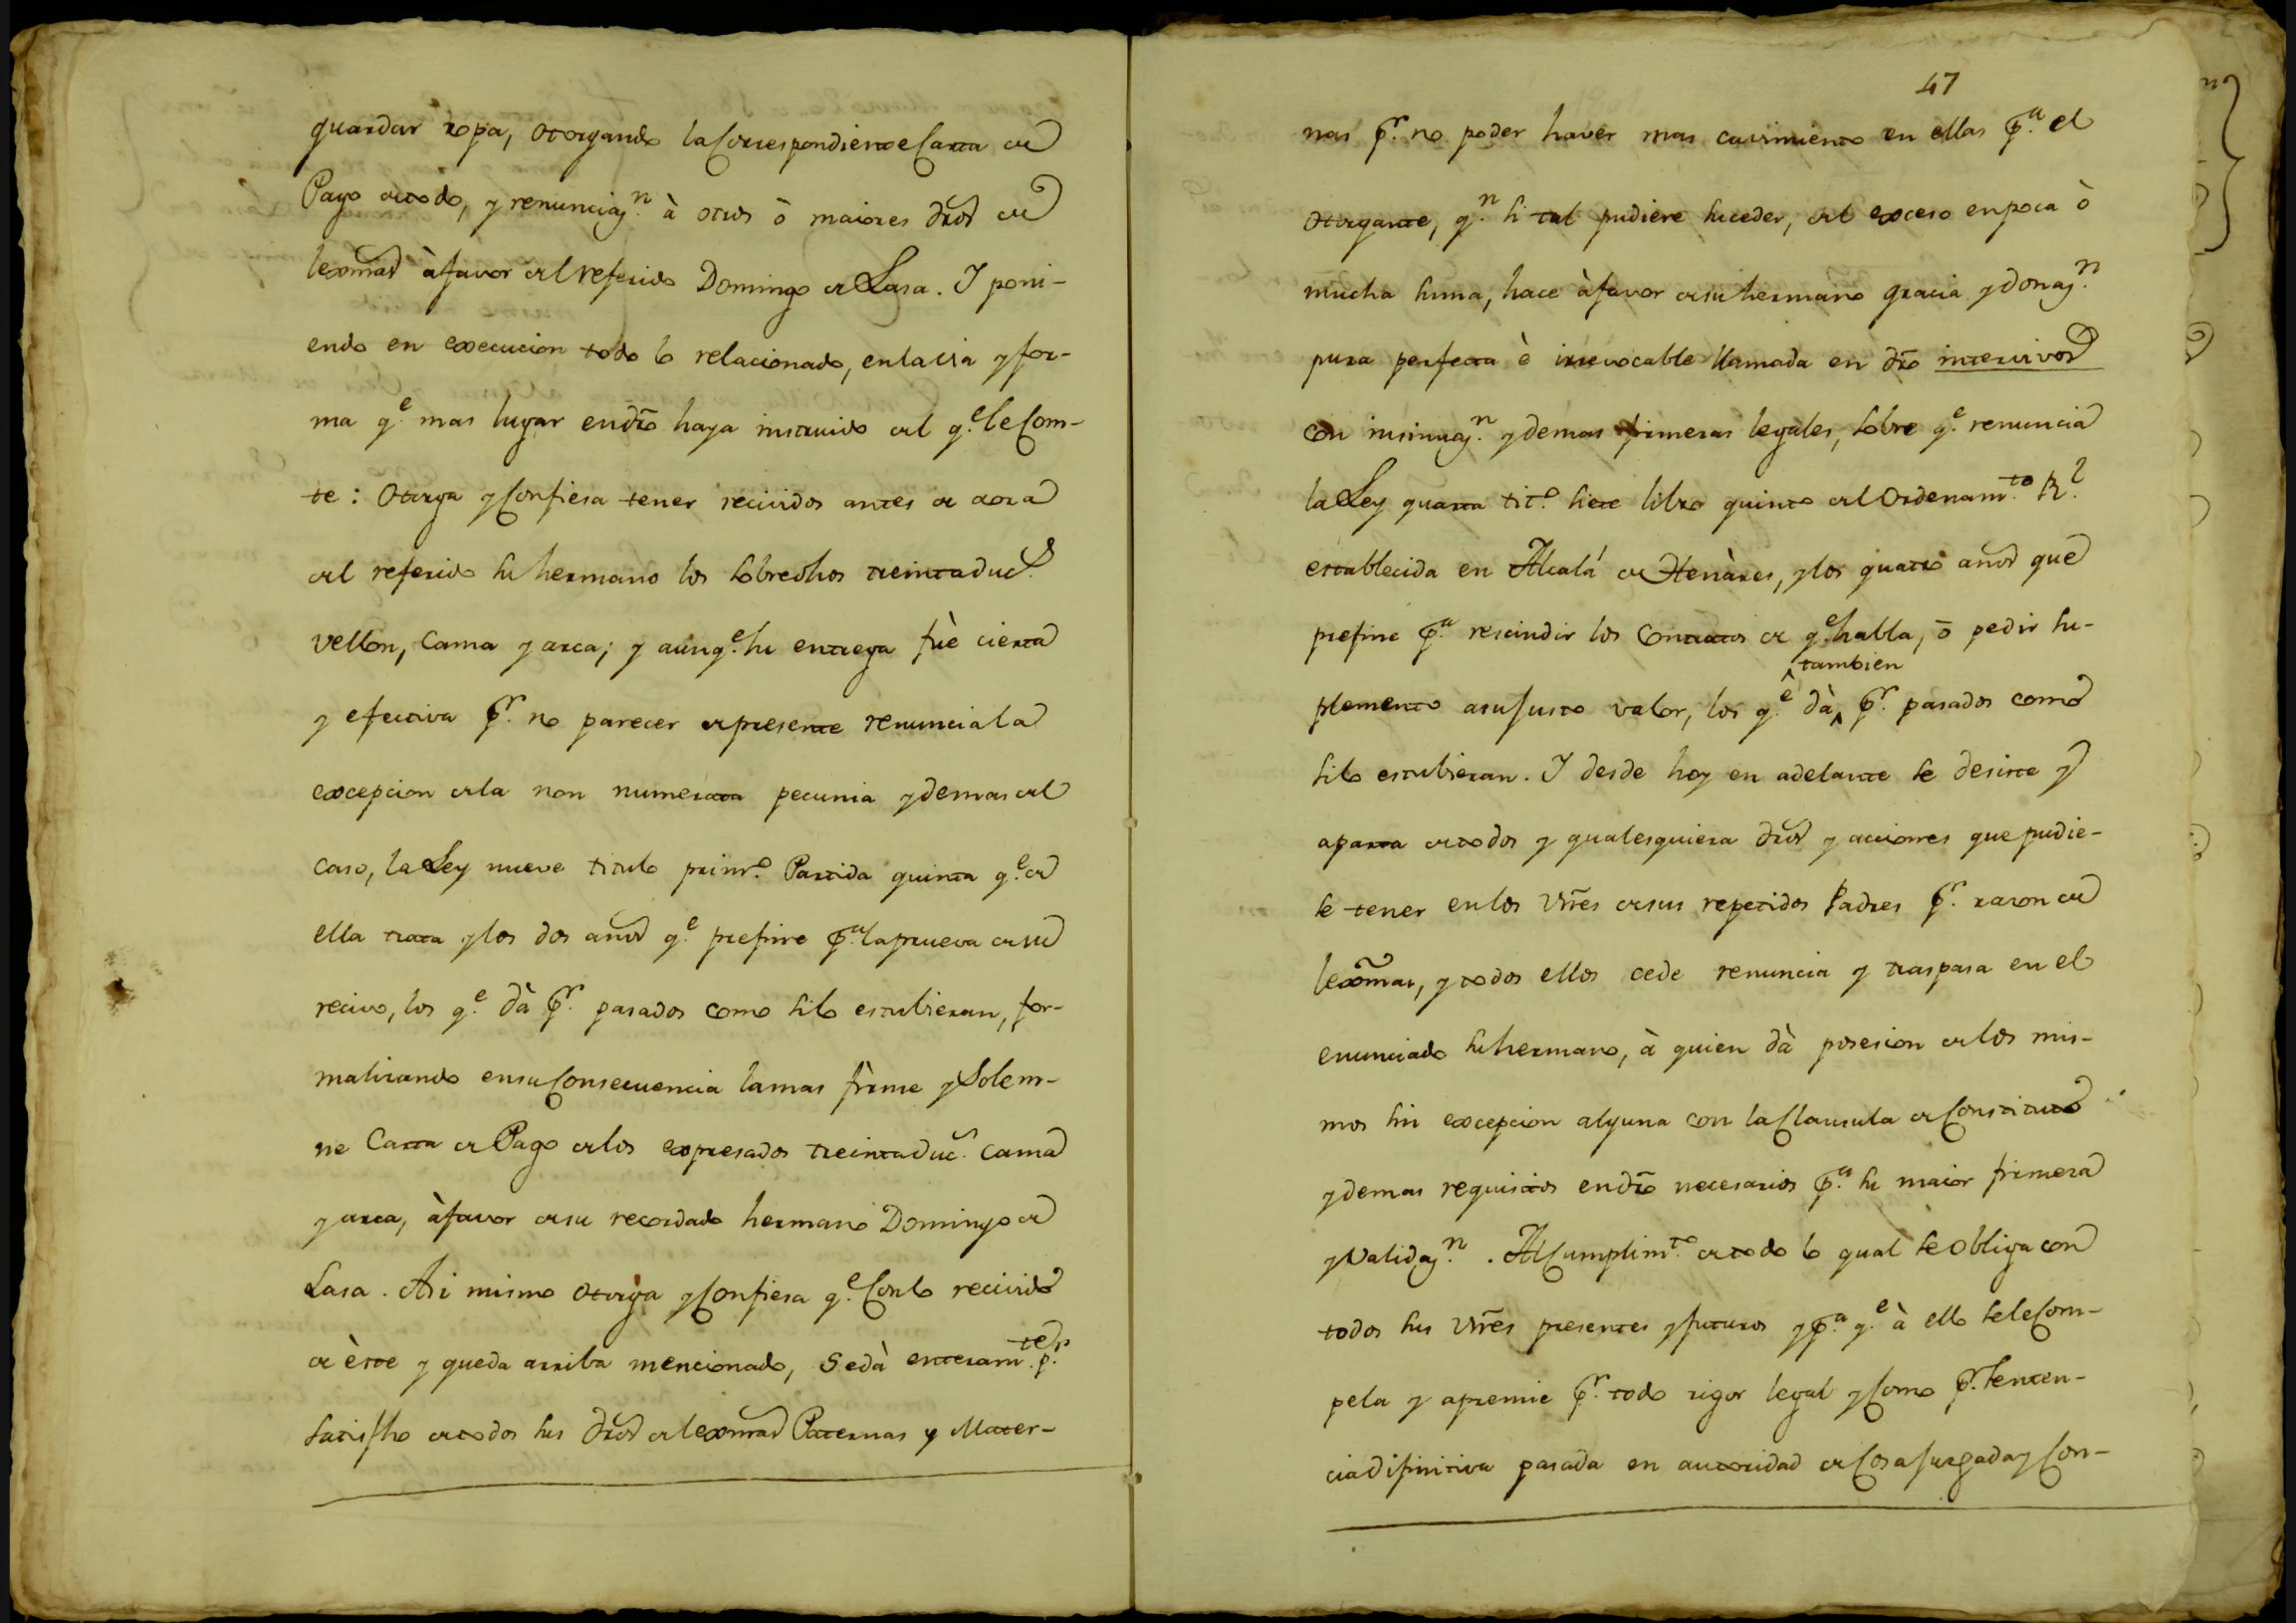 guardar ropa, otorgando la Correspondiente Carta de
Pago de todo, y renunciaz.n à otros ò maiores dros de
lexmas à favor del referido Domingo de Lasa. I poni-
endo en execucion todo lo relacionado, en la via y for-
ma q.e mas lugar en dro haya instruido del q.e le Com-
te: Otorga y Confiesa tener recividos antes de aora
del referido su hermano los sobredhos treinta duc.s
vellon, cama y arca; y aunq.e su entrega fuè cierta
y efectiva p.r no parecer de presente renuncia la
excepcion de la non numerata pecunia y demas del
caso, la Ley nueve titulo prim.o Partida quinta q.e de
ella trata y los dos años q.e prefine p.a la prueva de su
recivo, los q.e dà p.r pasados como si lo estubieran, for-
malizando en su Consecuencia la mas firme y Solem-
ne Carta de Pago de los expresados treinta duc.s cama
y arca, à favor de su recordado hermano Domingo de
Lasa. Asi mismo otorga y Confiesa q.e Con lo recivido
de èste y queda arriba mencionado, se dà enteram.te p.r
satisfho de todos sus dros de lexmas Paternas y Mater-
47
nas p.r no poder haver mas cavimiento en ellas p.a el
otorgante, q.n si tal pudiere suceder, del exceso en poca ò
mucha suma, hace à favor de su hermano gracia y donaz.n
pura perfecta è irrevocable llamada en dro intervivos
con insinuaz.n y demas firmezas legales, sobre q.e renuncia
la Ley quarta tit.o siete libro quinto del Ordenam.to R.l
establecida en Alcalá de Henàres, y los quatro años que
prefine p.a rescindir los Contratos de q.e habla, ò pedir su-
plemento a su justo valor, los q.e dà también p.r pasados como
si lo estubieran. I desde hoy en adelante se desiste y
aparta de todos y qualesquiera dros y acciones que pudie-
se tener en los vnes de sus repetidos Padres p.r razon de
lexmas, y todos ellos cede renuncia y traspasa en el
enunciado su hermano, à quien dà posesion de los mis-
mos sin excepcion alguna con la Clausula de Constituto
y demas requisitos en dro necesarios p.a su maior firmeza
y Validaz.n. Al Cumplim.to de todo lo qual se obliga con
todos sus vnes presentes y futuros y p.a q.e à ello se le Com-
pela y apremie p.r todo rigor legal y Como p.r senten-
cia difinitiva pasada en autoridad de Cosa Juzgada y Con-